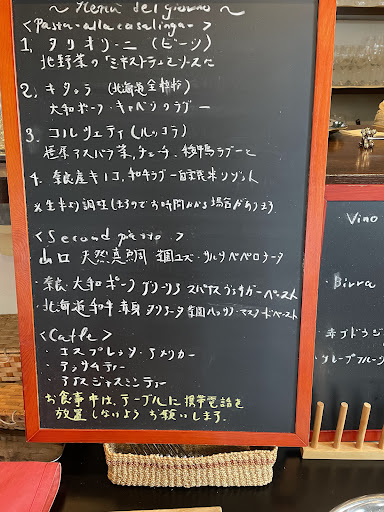 ~ Menù del giorno ~
<Pasta alla casalinga>
1, タリオリーニ (ビーツ)
北野菜の「ミネストラ」ソースに
2, キタッラ (北海道全粒粉)
大和ポーク・キャベツのラグー
3. コルツェティ (ルッコラ)
アスパラ菜,チェーチ, ラグーと
4. 奈良産キノコ, 和牛ラグー 自家米リゾット
※生米より調理しますので お時間かかる場合があります
<Second piatto>
山口 天然真鯛 ユズ・サルサ ペペロナータ
・奈良・大和ポーク グリーリア スパイス ヴィネガーペースト
・北海道和牛 赤身 タリアータ マスタードペースト
<Caffe>
・エスプレッソ・アメリカーノ
・アッサムティー
・アイスジャスミンティー
お食事中は、テーブルに携帯電話を
放置しないよう お願いします.
Vino
Birra
グレープフルーツ